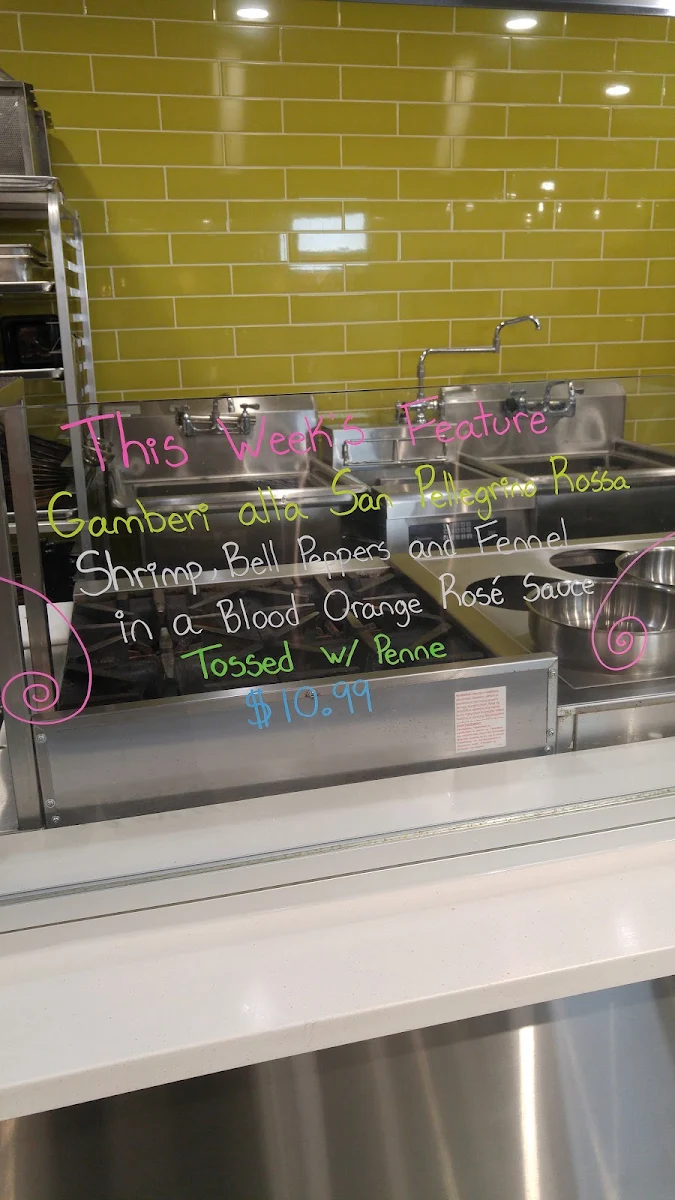 This Week's Feature
Gamberi alla San Pellegrino Rossa
Shrimp, Bell Peppers and Fennel
in a Blood Orange Rosé Sauce
Tossed w/ Penne
$10.99